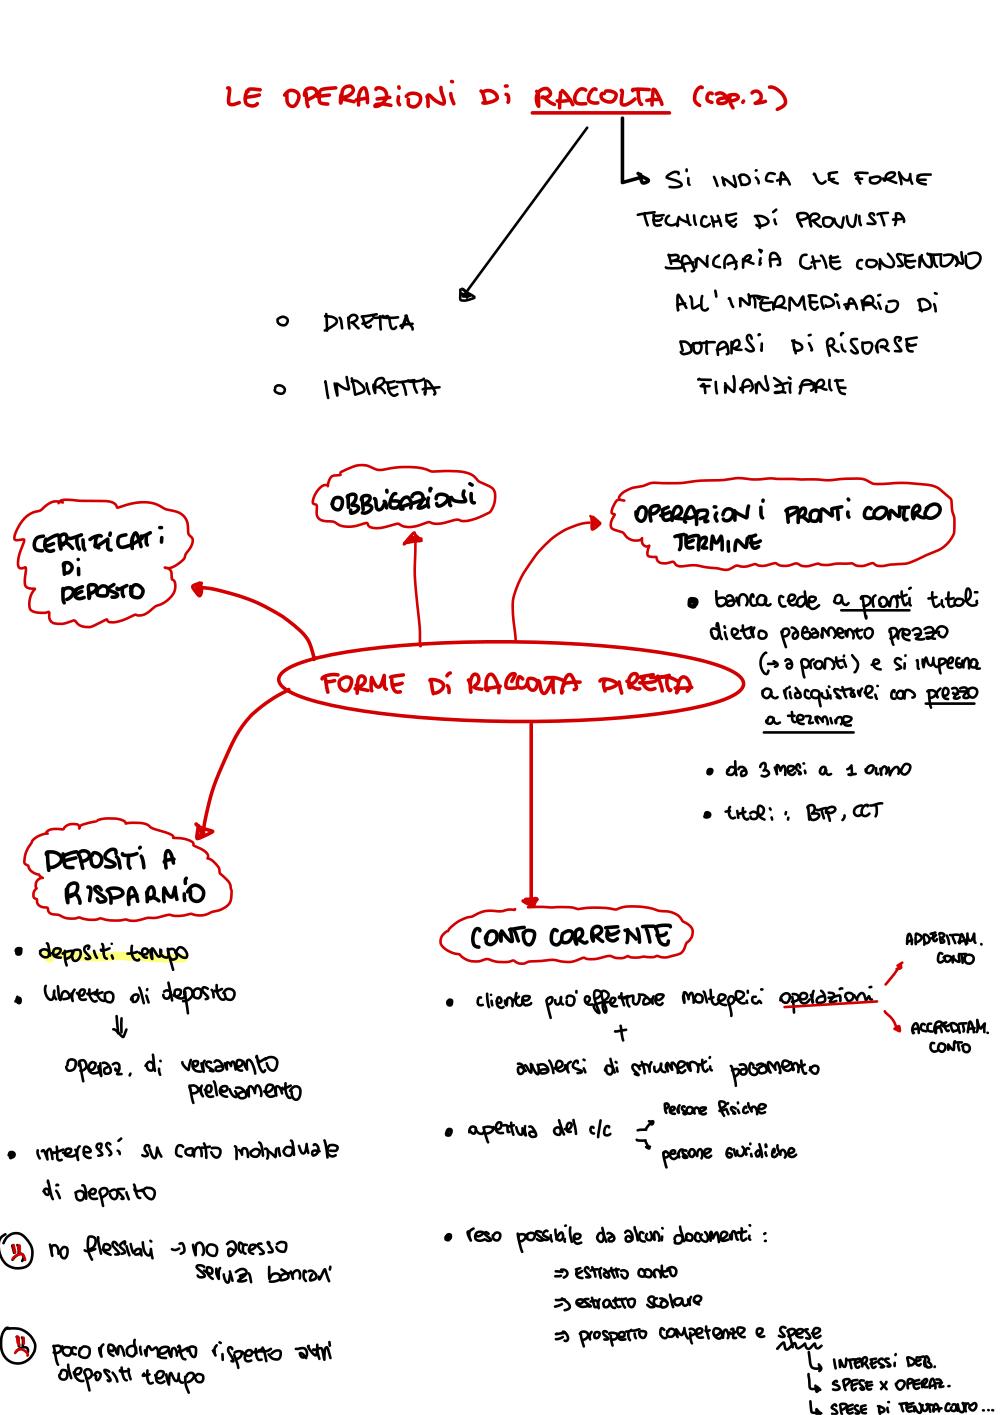 LE OPERAZIONI DI RACCOLTA (cap.2)
SI INDICA LE FORME
TECNICHE DI PROVVISTA
BANCARIA CHE CONSENTONO
ALL'INTERMEDIARIO DI
DOTARSI DI RISORSE
FINANZIARIE
DIRETTA
INDIRETTA
OBBLIGAZIONI
OPERAZIONI PRONTI CONTRO
TERMINE
CERTIFICATI
DI
DEPOSITO
• banca cede a pronti titoli
dietro pagamento prezzo
(→ a pronti) e si impegna
a riacquistarei con prezzo
a termine
• da 3 mesi a 1 anno
• titoli : BTP, CCT
FORME DI RACCOLTA DIRETTA
DEPOSITI A
RISPARMIO
• depositi tempo
• libretto di deposito
⇓
operaz. di versamento
prelevamento
• interessi su conto individuale
di deposito
no flessibili → no accesso
servizi bancari
poco rendimento rispetto altri
depositi tempo
CONTO CORRENTE
• cliente può effettuare molteplici operazioni
ADDEBITAM.
CONTO
ACCREDITAM.
CONTO
+
avvalersi di strumenti pagamento
• apertura del c/c
persone fisiche
persone giuridiche
• reso possibile da alcuni documenti :
⇒ estratto conto
⇒ estratto scalare
⇒ prospetto competente e spese
↳ INTERESSI DEB.
↳ SPESE X OPERAZ.
↳ SPESE DI TENUTA CONTO...